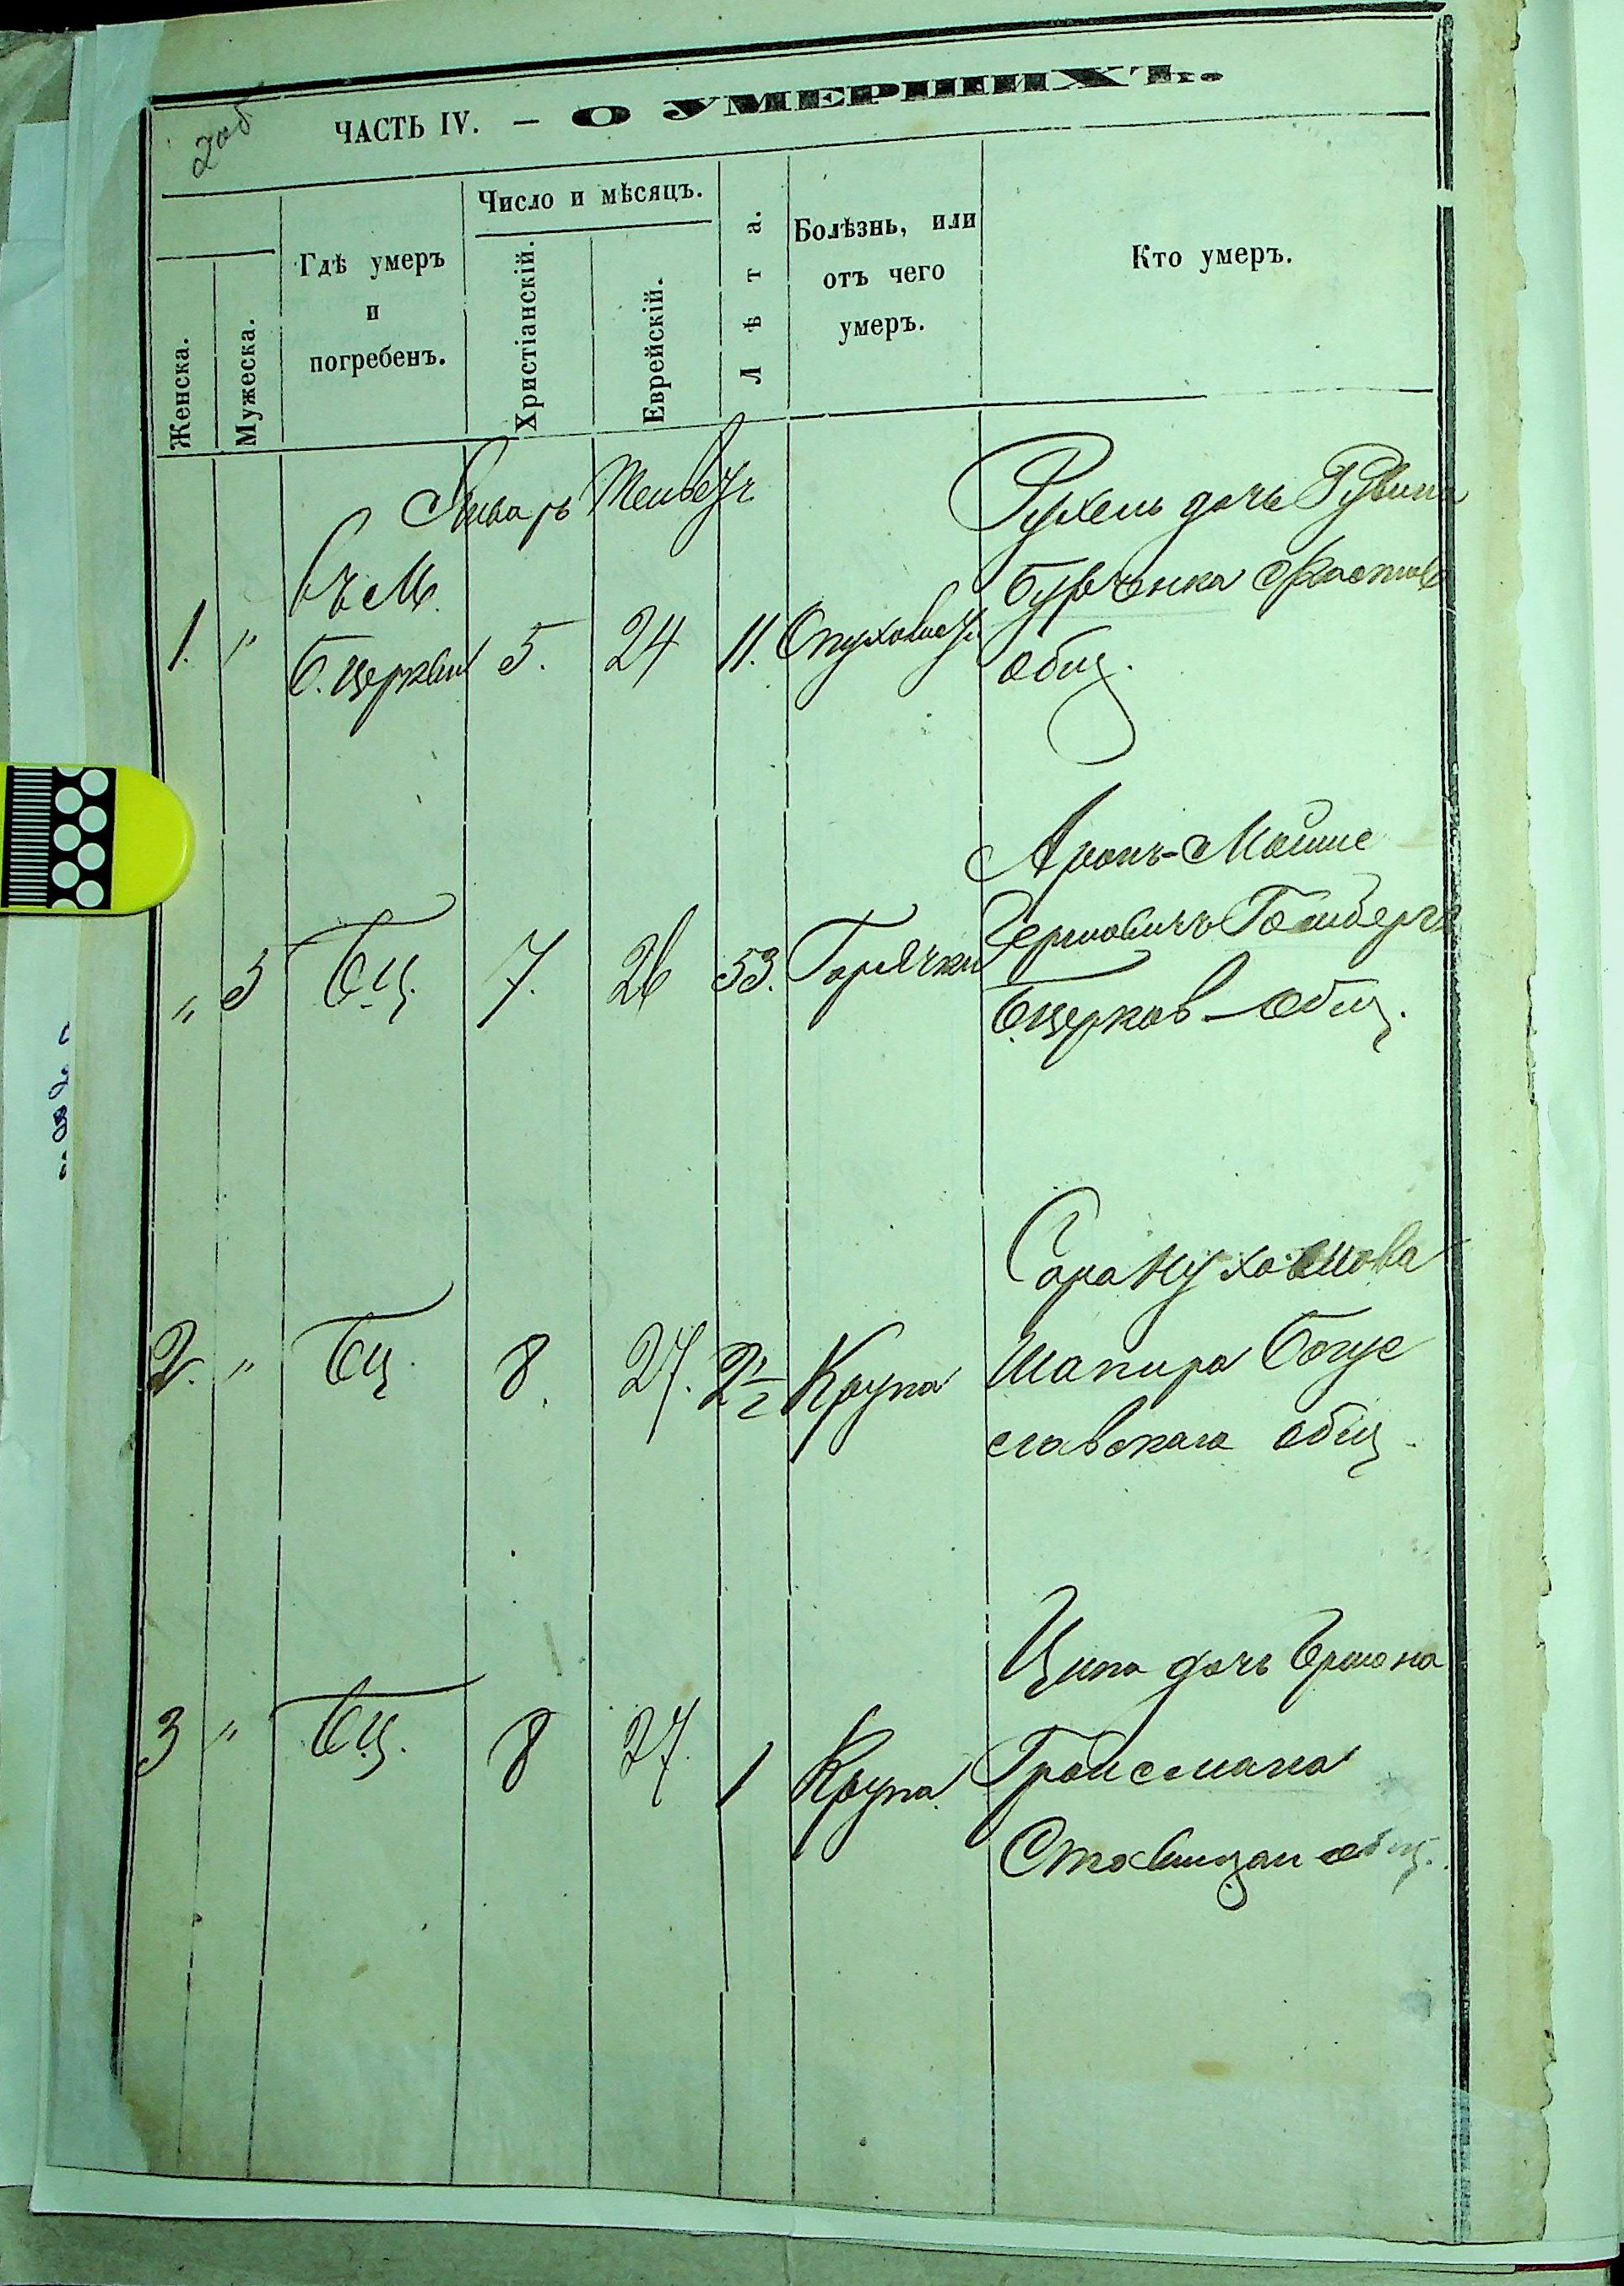 2об
ЧАСТЬ IV. — О УМЕРШИХЪ.
Женска.
Мужеска.
Гдѣ умеръ
и
погребенъ.
Число и мѣсяцъ.
Христіанскій.
Еврейскій.
Лѣта.
Болѣзнь, или
отъ чего
умеръ.
Кто умеръ.
Январь Тейвеуг
1. " въ м. Б. Церкви 5. 24 11.
Рухель дочь Рувина
Бурченка Фастов
общ.
" 3 БЦ. 7. 26 53. Горячки
Аронъ-Мойше
Гомберг
Бцерков общ.
2. " БЦ. 8. 27. 2½ Крупа
Сора Нухомова
Шапира Богу
славскаго общ.
3 " БЦ. 8 27. 1 Крупа
Ципа дочь Ершона
Гройсмана
Ставищан общ.